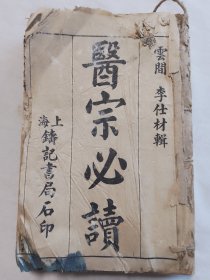 雲間 李仕材輯
醫宗必讀
上海鑄記書局石印